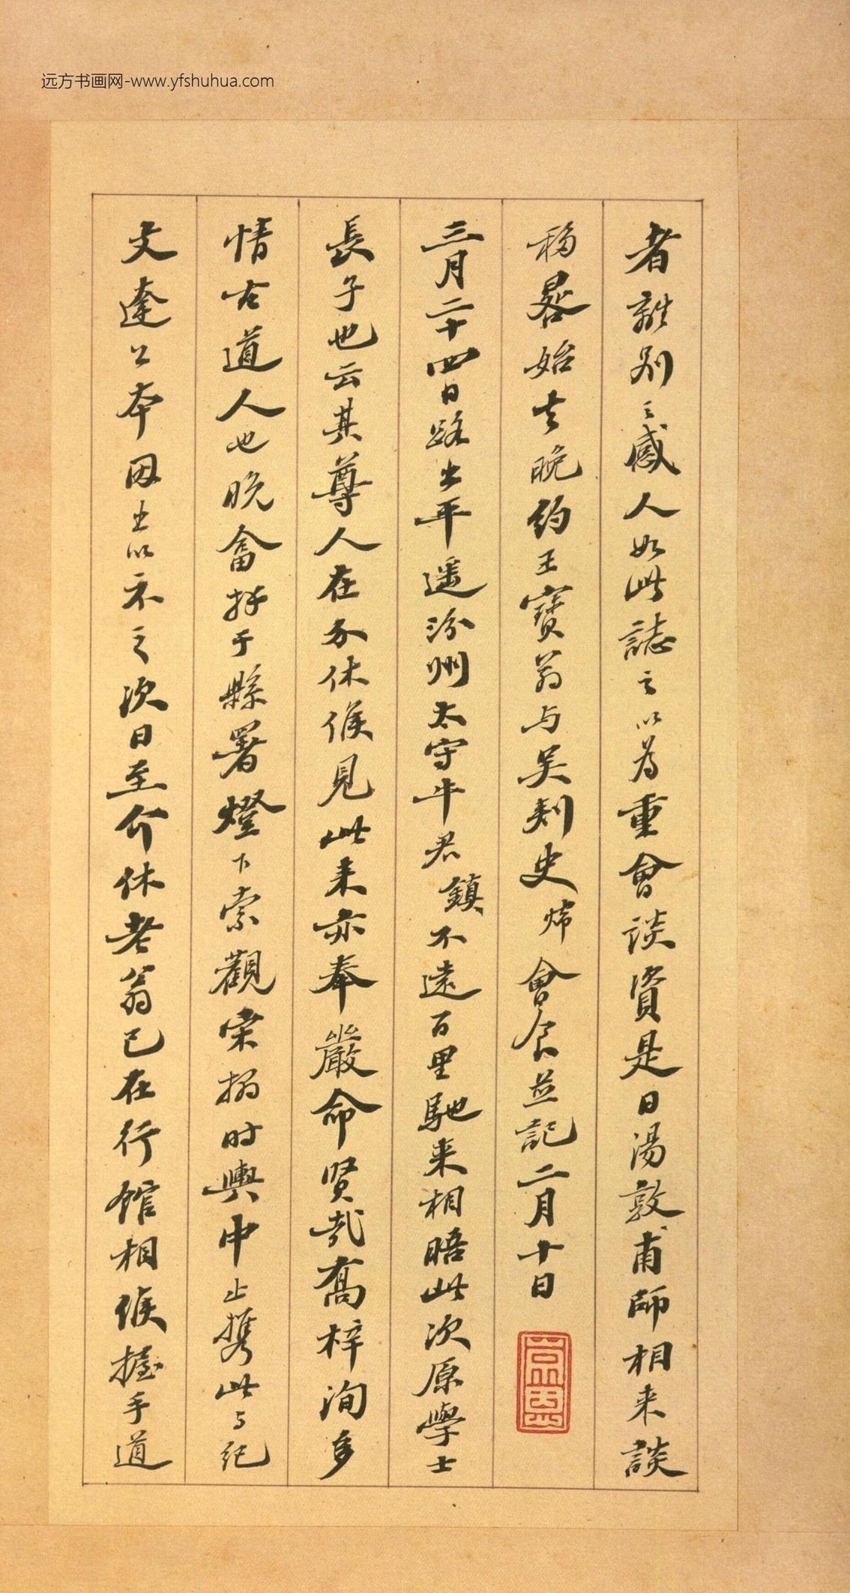 远方书画网-www.yfshuhua.com
者離別之感人如此誌之以為重會談資是日湯敦甫師相来談
移晷始去晚約王寶翁与吴刺史煒會食並記二月十日
三月二十四日路出平遥汾州太守牛君鎮不遠百里馳来相晤此次原學士
長子也云其尊人在介休候見此来亦奉嚴命賢哉喬梓洵多
情古道人也晚酓於于縣署燈下索觀宋搨時輿中止携此与紀
文達公本因出以示之次日至介休老翁已在行館相候握手道